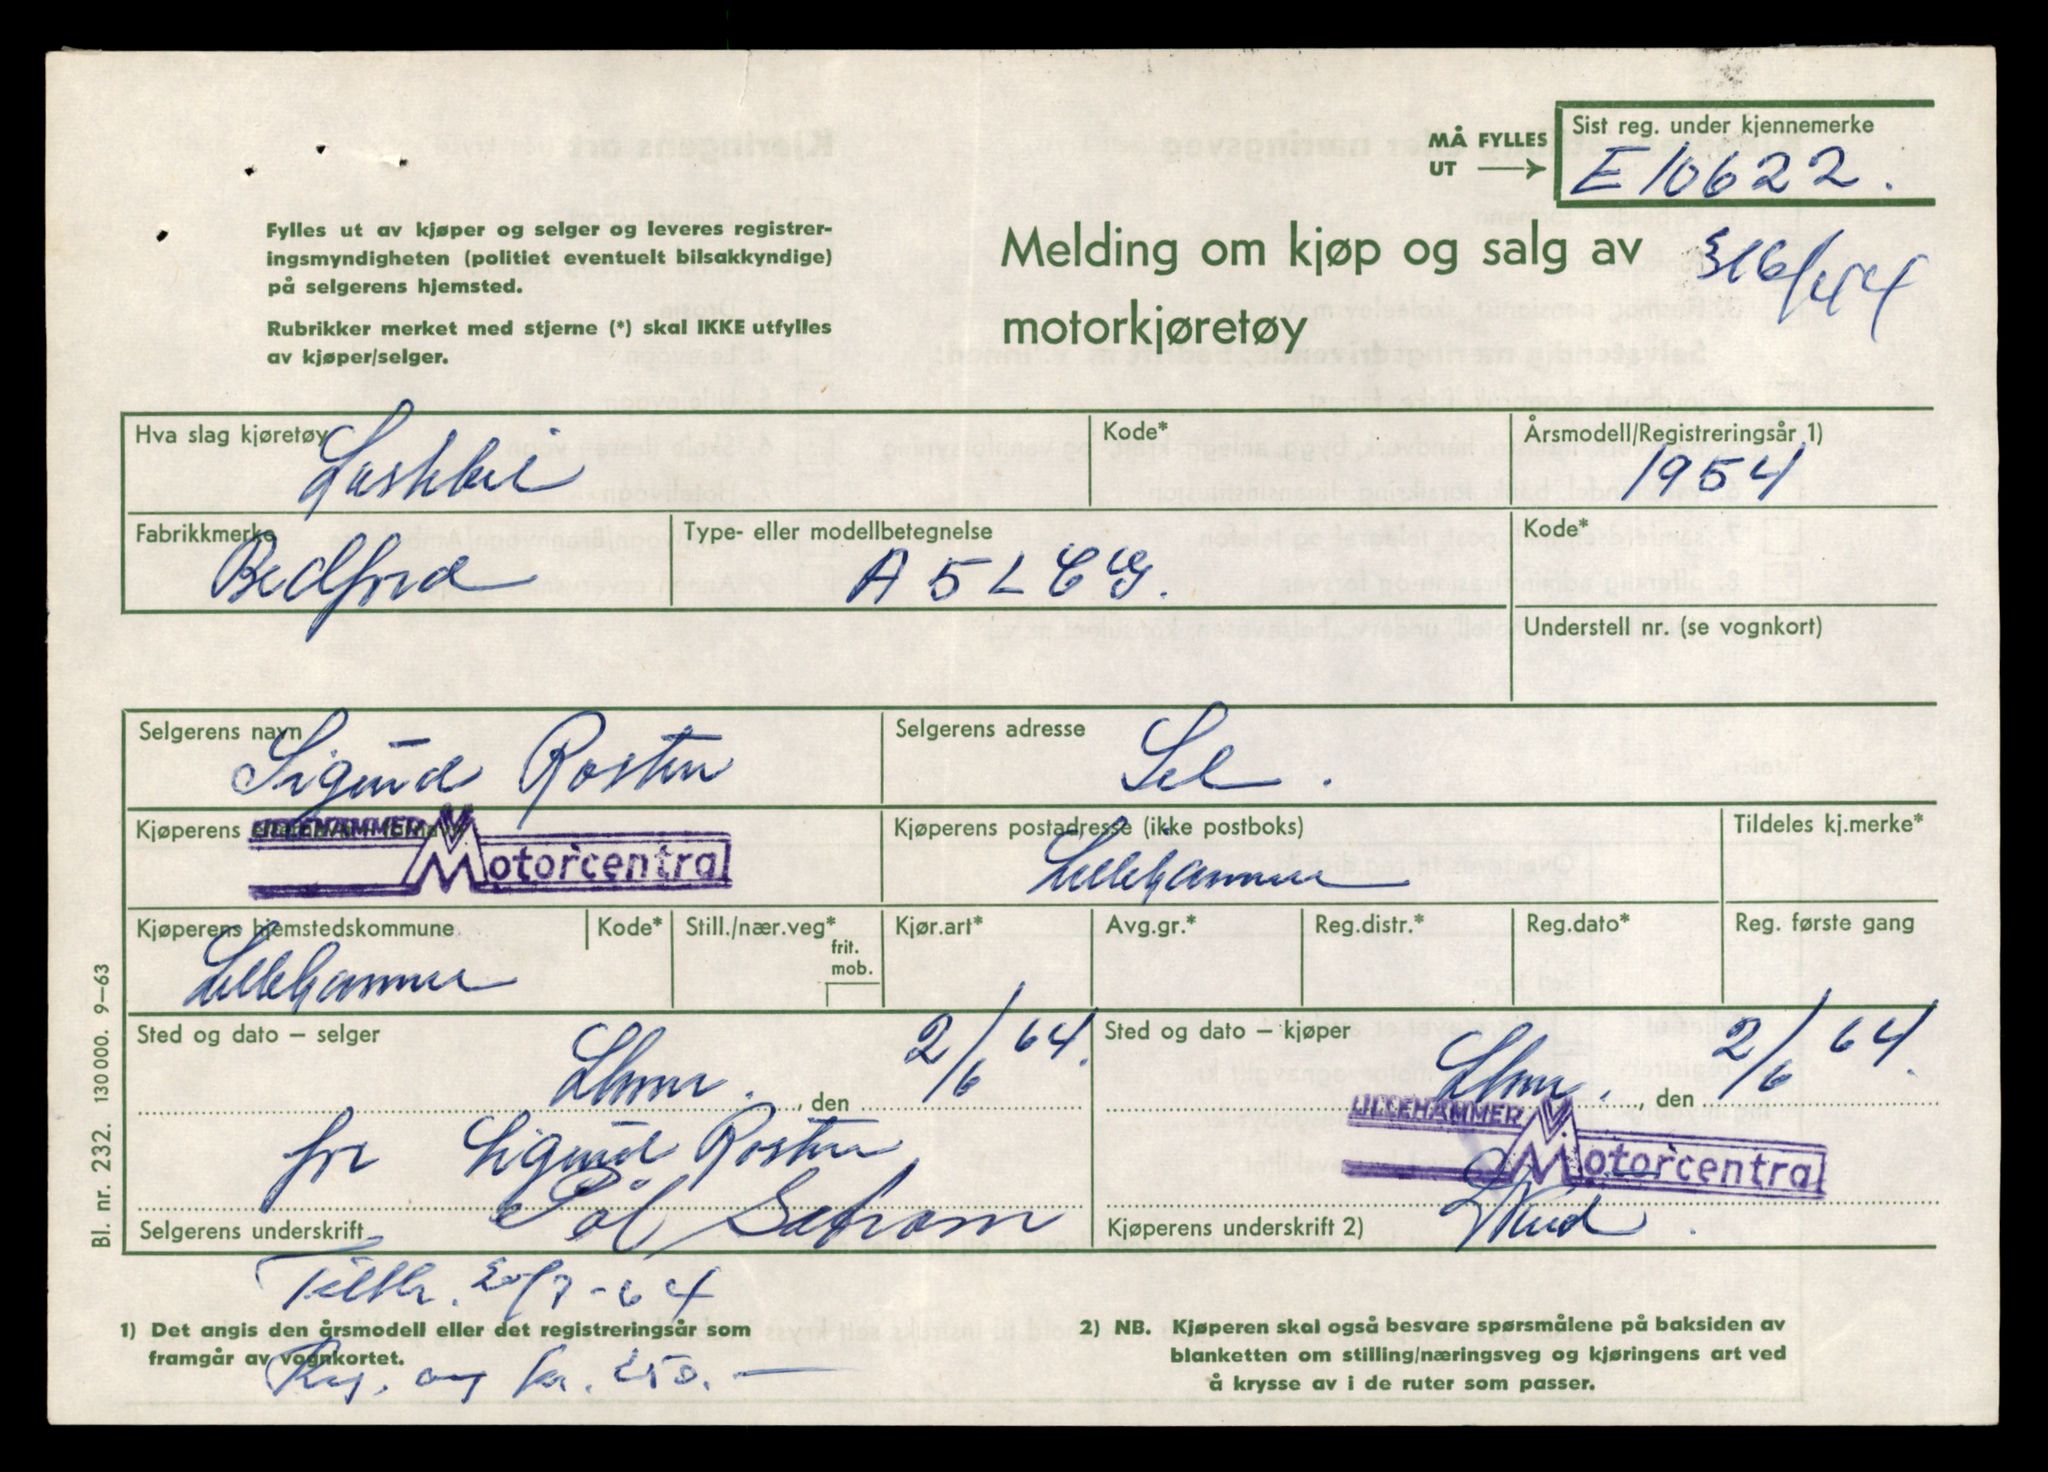 MÅ FYLLES UT
Sist reg. under kjennemerke
E 10622.
Fylles ut av kjøper og selger og leveres registrer-
ingsmyndigheten (politiet eventuelt bilsakkyndige)
på selgerens hjemsted.
Rubrikker merket med stjerne (*) skal IKKE utfylles
av kjøper/selger.
Melding om kjøp og salg av
motorkjøretøy
Hva slag kjøretøy
Lastebil
Kode*
Årsmodell/Registreringsår 1)
1954
Fabrikkmerke
Bedford
Type- eller modellbetegnelse
A 5 L C G.
Kode*
Understell nr. (se vognkort)
Selgerens navn
Sigurd Rosten
Selgerens adresse
Sel.
Kjøperens
LILLEHAMMER
Motorcentral
Kjøperens postadresse (ikke postboks)
Lillehammer
Tildeles kj.merke*
Kjøperens hjemstedskommune
Lillehammer
Kode*
Still./nær.veg*
frit.
mob.
Kjør.art*
Avg.gr.*
Reg.distr.*
Reg.dato*
Reg. første gang
Sted og dato – selger
Lhmr. , den 2/6 64.
for Sigurd Rosten
Selgerens underskrift
Sted og dato – kjøper
Lhmr. , den 2/6 64.
LILLEHAMMER
Motorcentral
Kjøperens underskrift 2)
Bl. nr. 232. 130000. 9–63
1) Det angis den årsmodell eller det registreringsår som
framgår av vognkortet.
Reg. avg kr.
2) NB. Kjøperen skal også besvare spørsmålene på baksiden av
blanketten om stilling/næringsveg og kjøringens art ved
å krysse av i de ruter som passer.